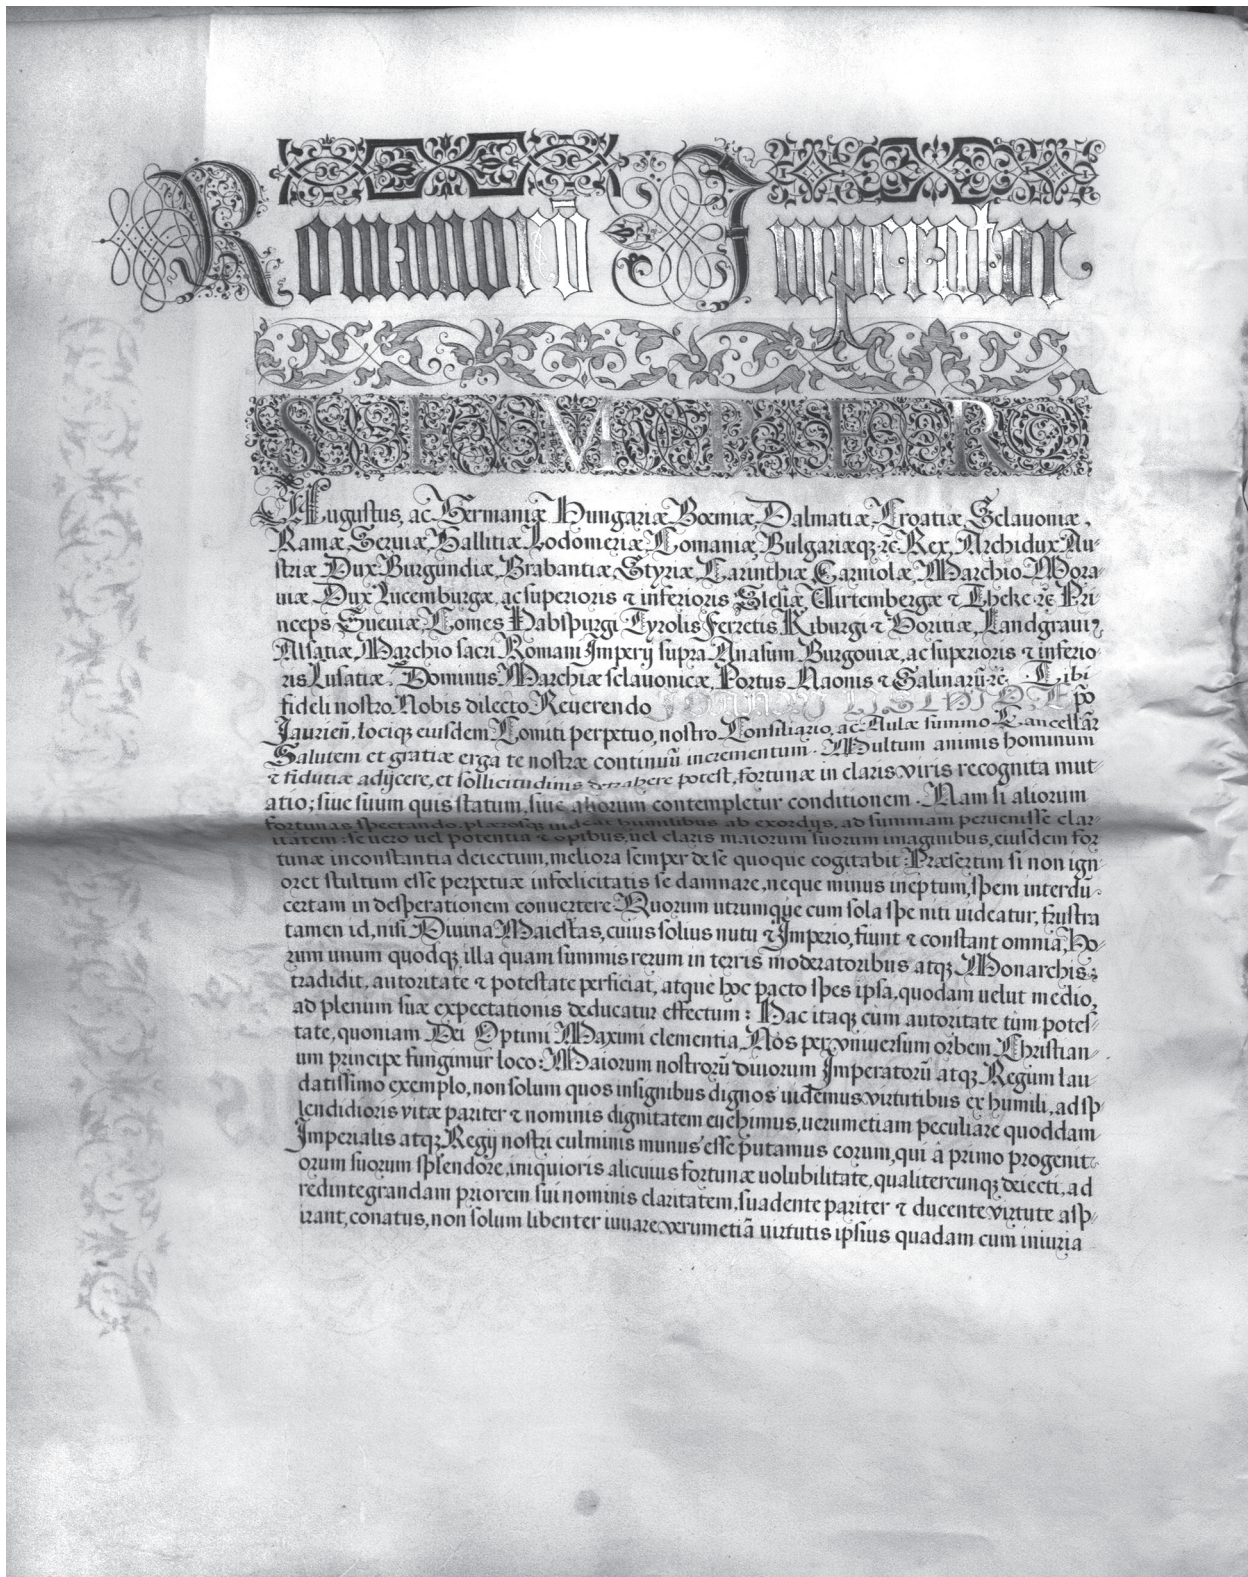 Romanorū Imperator
SEMPER
Augustus, ac Germaniæ Hungariæ Boemiæ, Dalmatiæ, Croatiæ, Sclauoniæ,
Ramæ, Seruiæ, Gallitiæ Lodomeriæ Comaniæ, Bulgariæqꝫ ꝛc Rex, Archidux Au⸗
striæ Dux Burgundiæ, Brabantiæ Styriæ, Carinthiæ, Carniolæ, Marchio Mora
uiæ Dux Lucemburgæ, ac superioris ⁊ inferioris Slesiæ, Uirtembergæ ⁊ Theke ꝛc Pri
nceps Sueuiæ, Comes Habspurgi Tyrolis Ferretis Kiburgi ⁊ Goritiæ, Landgrauiꝰ
Alsatiæ, Marchio sacri Romani Imperij supra Anasum Burgouiæ, ac superioris ⁊ inferio⸗
ris Lusatiæ. Dominus Marchiæ sclauonicæ, Portus Naonis ⁊ Salinarū ꝛc Tibi
fideli nostro Nobis dilecto Reuerendo IOANNI LISTHIO Epō
Jaurieñ, locíqꝫ eiusdem Comiti perpetuo, nostro Consiliario, ac Aulæ summo Cancellar̄
Salutem et gratiæ erga te nostræ continuū incrementum. Multum animis hominum
⁊ fidutiæ adijcere, et sollicitudinis detrahere potest, fortunæ in claris viris recognita mut⸗
atio; siue suum quis statum, siue aliorum contempletur conditionem. Nam si aliorum
fortunas spectando, plærosqꝫ uideat humilibus ab exordijs, ad summam peruenisse clar⸗
itatem: se uero uel potentia ⁊ opibus, uel claris maiorum suorum imaginibus, eiusdem for
tunæ inconstantia deiectum, meliora semper de se quoque cogitabit: Præsertim si non ign
oret stultum esse perpetuæ infœlicitatis se damnare, neque minus ineptum, spem interdū
certam in desperationem conuertere Quorum utrumque cum sola spe niti uideatur, frustra
tamen id, nisi Diuina Maiestas, cuius solius nutu ⁊ Imperio, fiunt ⁊ constant omnia, Ho⸗
rum unum quodqꝫ illa quam summis rerum in terris moderatoribus atqꝫ Monarchis
tradidit, autoritate ⁊ potestate perficiat, atque hoc pacto spes ipsa, quodam uelut medio,
ad plenum suæ expectationis deducatur effectum: Hac itaqꝫ cùm autoritate tùm potes⸗
tate, quoniam Dei Optimi Maximi clementia, Nos per vniuersum orbem Christian
um principe fungimur loco: Maiorum nostrorū diuorum Imperatorū atqꝫ Regum lau
datissimo exemplo, non solum quos insignibus dignos uidemus virtutibus ex humili, ad sp⸗
lendidioris vitæ pariter ⁊ nominis dignitatem euehimus, uerumetiam peculiare quoddam
Imperialis atqꝫ Regij nostri culminis munus esse putamus eorum, qui à primo progenit⸗
orum suorum splendore, iniquioris alicuius fortunæ uolubilitate, qualitercunqꝫ deiecti, ad
redintegrandam priorem sui nominis claritatem, suadente pariter ⁊ ducente virtute asp⸗
irant, conatus, non solum libenter iuuare verumetiā uirtutis ipsius quadam cum iniuria